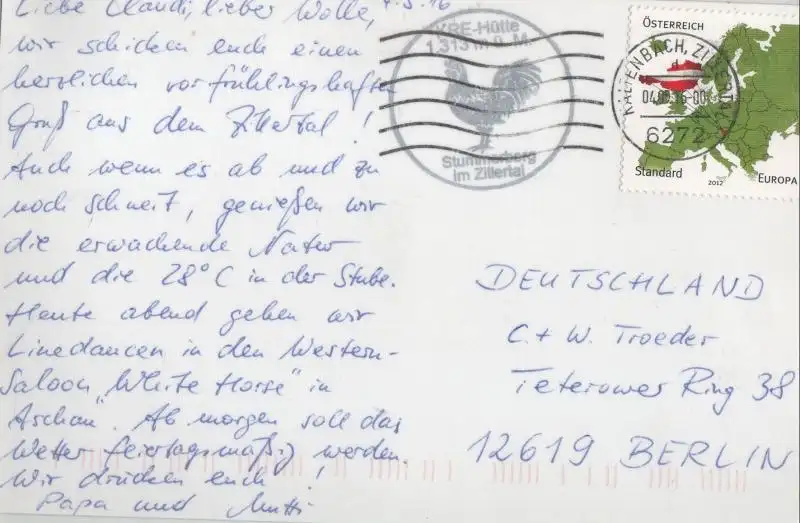 Liebe Claudi, lieber Wolle, 4.3.16
wir schicken euch einen
herzlichen vorfrühlingshaften
Gruß aus dem Zillertal!
Auch wenn es ab und zu
noch schneit, genießen wir
die erwachende Natur
und die 28°C in der Stube.
Heute abend gehen wir
Linedancen in den Western-
Saloon "White Horse" in
Aschau. Ab morgen soll das
Wetter feiertagsmäßig werden.
Wir drücken euch!
Papa und Mutti
KRE-Hütte
1.313 M.ü.M.
Stummerberg
im Zillertal
ÖSTERREICH
KALTENBACH,
6272
Standard
2012
EUROPA
DEUTSCHLAND
C. + W. Troeder
Teterower Ring 38
12619 BERLIN